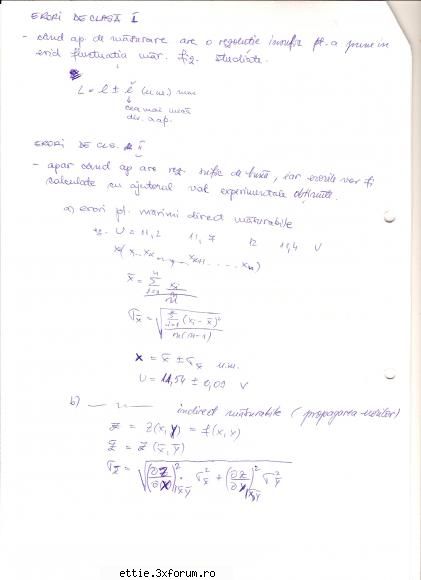 ERORI DE CLASĂ I
- când ap. de măsurare are o rezoluție insufic. pt. a pune in
evid fluctuația măr. fiz. studiate.
L = l ± (u.m.) mm
cea mai mică
div. a ap.
ERORI DE CLS. II
- apar când ap are rez. sufic de bună, iar erorile vor fi
calculate cu ajutorul val experimentale obținute.
a) erori pt. mărimi direct măsurabile
eg. U = 11,2 11,7 12 11,4 V
x̄ =
σx̄ = √ Σ (xi - x̄)² / n(n-1)
x = x̄ ± σx̄ u.m.
U = 11,54 ± 0,09 V
b) —— „ —— indirect măsurabile (propagarea erorilor)
z = z(x, y) = f(x, y)
z̄ = z(x̄, ȳ)
σz̄ = √ (∂z/∂x)² x̄,ȳ · σx̄² + (∂z/∂y)² x̄,ȳ σȳ²
ettie.3xforum.ro